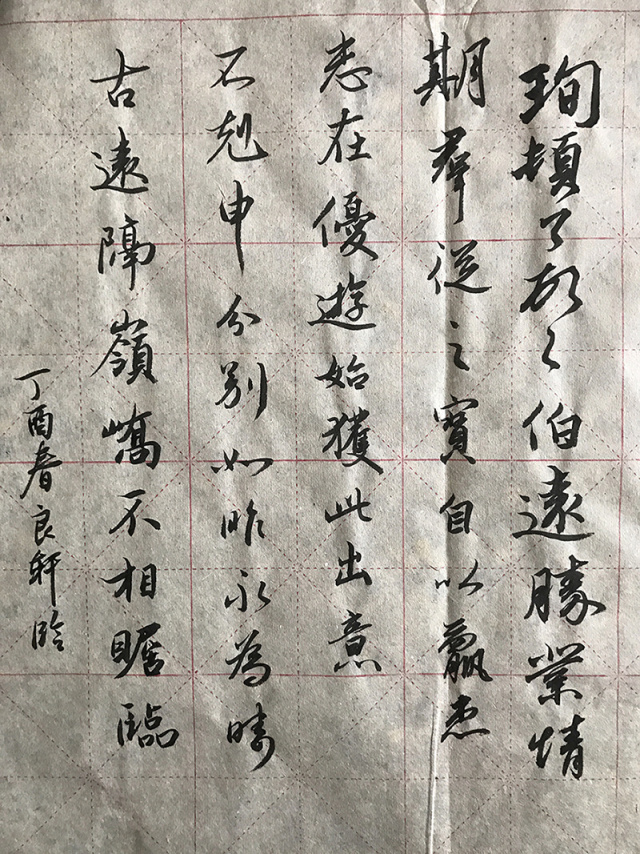 珣頓首頓首伯遠勝業情
期羣從之寶自以羸患
志在優遊始獲此出意
不剋申分別如昨永為疇
古遠隔嶺嶠不相瞻臨
丁酉春良軒臨